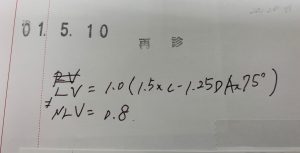 01. 5. 10
再診
LV = 1.0 (1.5x C-1.25D Ax75°
NLV = 0.8